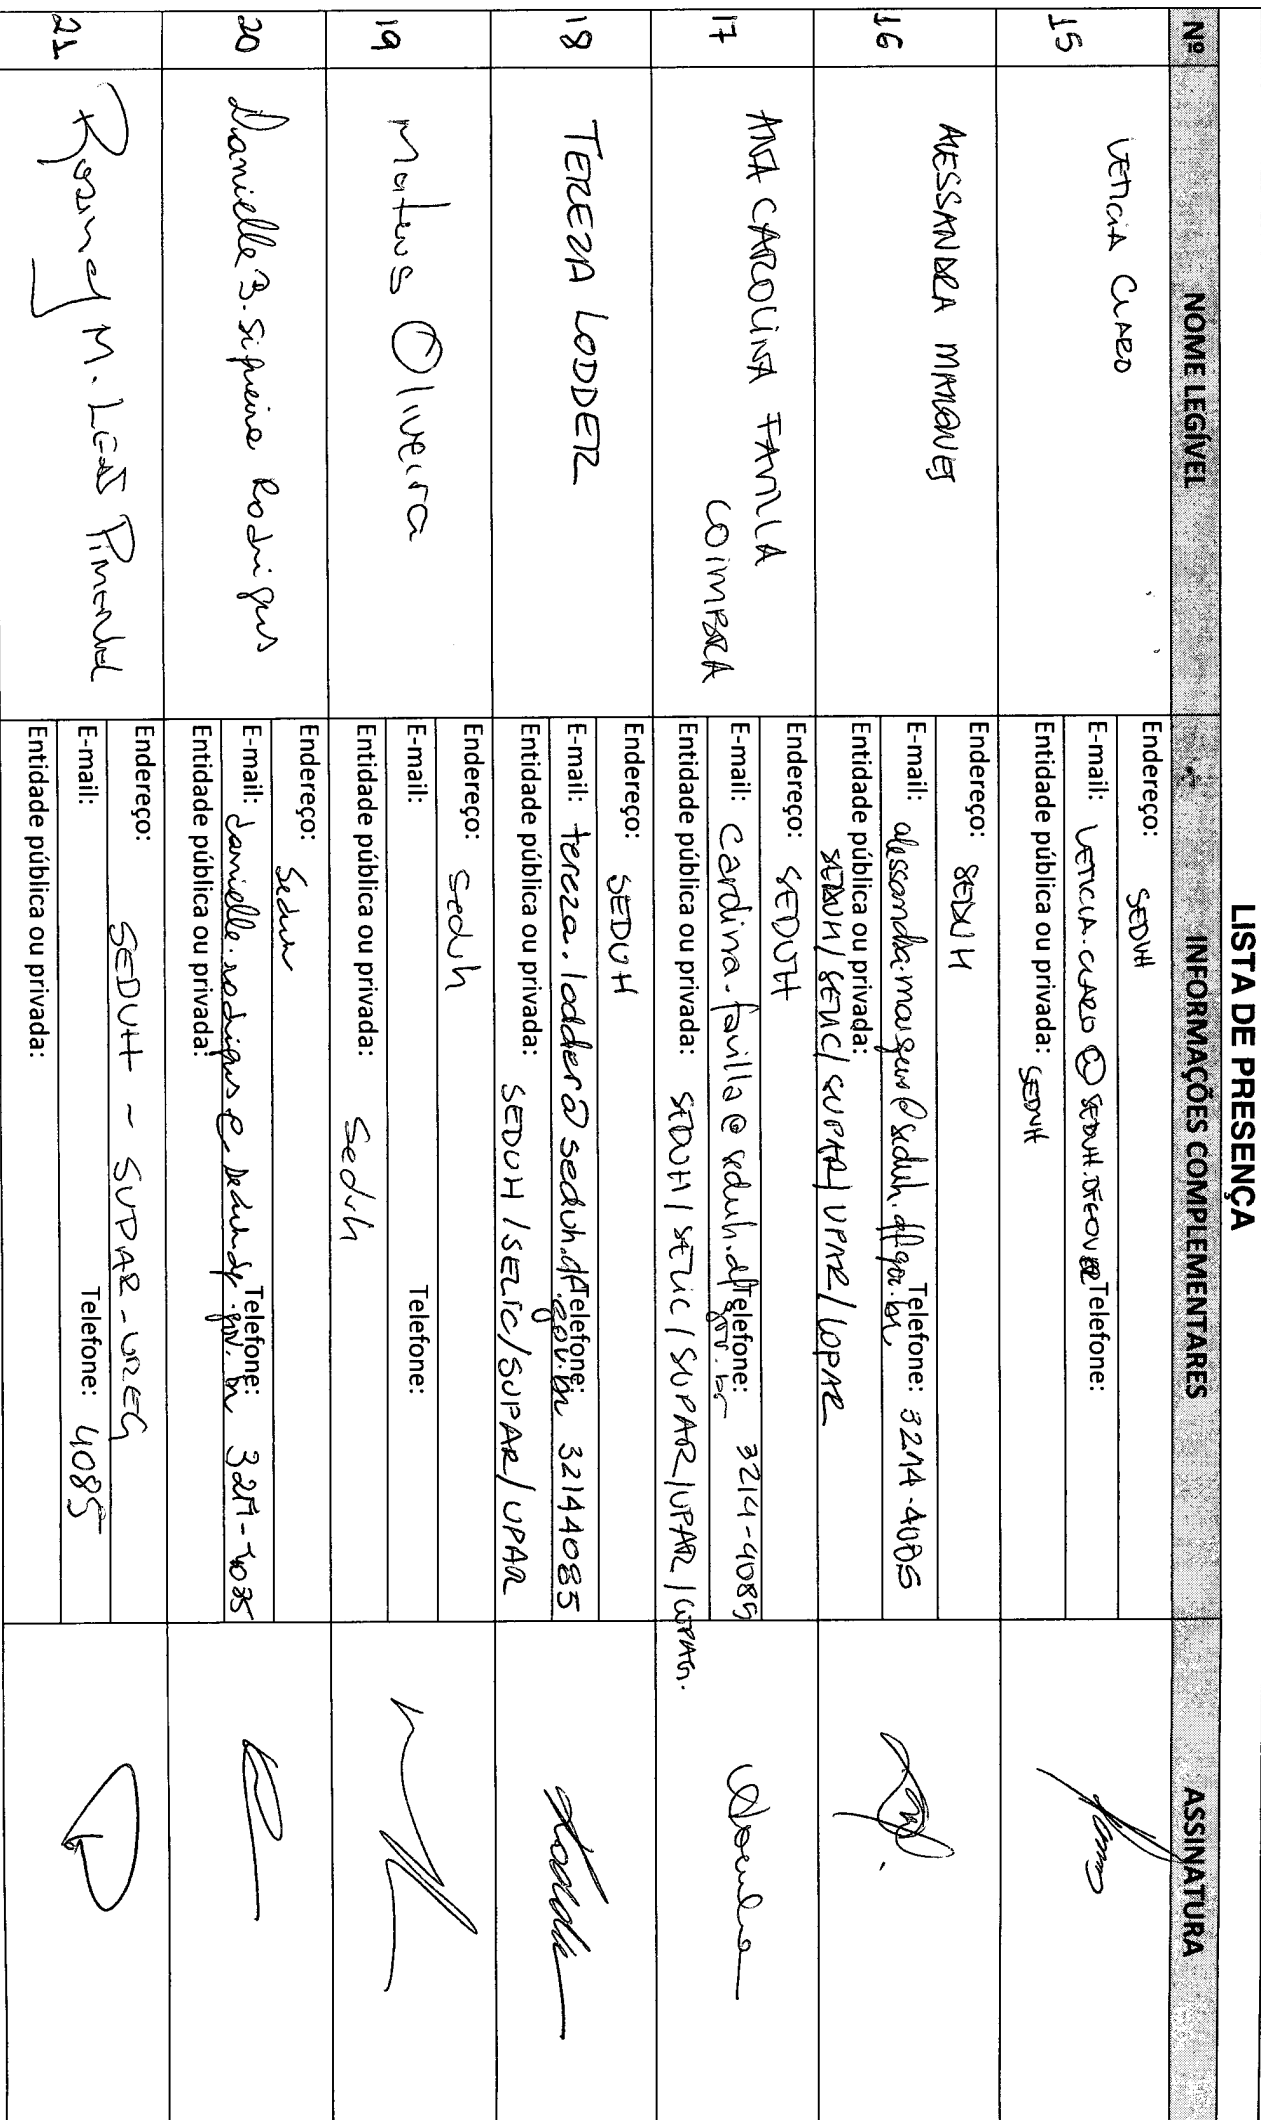 LISTA DE PRESENÇA
Nº NOME LEGÍVEL INFORMAÇÕES COMPLEMENTARES ASSINATURA
15 LETICIA CLARO
Endereço: SEDUH
E-mail: LETICIA.CLARO@SEDUH.DF.GOV.BR Telefone:
Entidade pública ou privada: SEDUH
16 ALESSANDRA MARQUES
Endereço: SEDUH
E-mail: alessandra.marques@seduh.df.gov.br Telefone: 3214-4085
Entidade pública ou privada:
SEDUH/SELIC/SUPAR/UPAR/COPAR
17 ANA CAROLINA FAVILLA
COIMBRA
Endereço: SEDUH
E-mail: carolina.favilla@seduh.df.gov.br Telefone: 3214-4085
Entidade pública ou privada: SEDUH/SELIC/SUPAR/UPAR/
18 TEREZA LODDER
Endereço: SEDUH
E-mail: tereza.lodder@seduh.df.gov.br Telefone: 32144085
Entidade pública ou privada: SEDUH/SELIC/SUPAR/UPAR
19 Mateus Oliveira
Endereço: Seduh
E-mail: Telefone:
Entidade pública ou privada: Seduh
20 Danielle B. Siqueira Rodrigues
Endereço: Seduh
E-mail: danielle.rodrigues@seduh.df.gov.br Telefone: 3214-4085
Entidade pública ou privada:
21 M. Leão Pimentel
Endereço: SEDUH - SUPAR - UREG
E-mail: Telefone: 4085
Entidade pública ou privada: